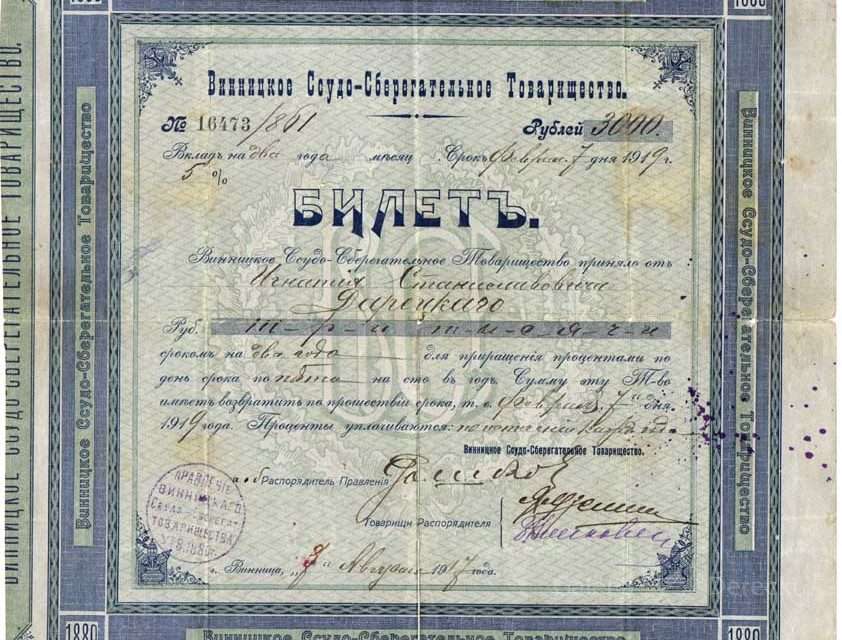 ВИННИЦКОЕ ССУДО-СБЕРЕГАТЕЛЬНОЕ ТОВАРИЩЕСТВО.
Винницкое Ссудо-Сберегательное Товарищество
Винницкое Ссудо-Сберегательное Товарищество.
№ 16473/1861 Рублей 3000.
Вкладъ на два года мѣсяц. Срокъ Феврал. 7 дня 1919 г.
5 %
БИЛЕТЪ.
Винницкое Ссудо-Сберегательное Товарищество приняло отъ
Игнатія Станиславовича
Дарецкаго
Руб. т-р-и т-ы-с-я-ч-и
срокомъ на два года для приращенія процентами по
день срока по пяти на сто въ годъ. Сумму эту Т-во
имѣетъ возвратить по прошествіи срока, т. е. Февраля 7 дня
1919 года. Проценты уплачиваются: по истеченіи года
Винницкое Ссудо-Сберегательное Товарищество.
Распорядитель Правленія
Товарищи Распорядителя
ПРАВЛЕНІЕ
ВИННИЦКАГО
ССУДО-СБЕРЕГА-
ТОВАРИЩЕСТВА
УТВ. 1880 г.
г. Винница, "7" Августа 1917 года.
Винницкое Ссудо-Сберегательное Товарищество
1880
Винницкое Ссудо-Сберегательное Товарищество
1880